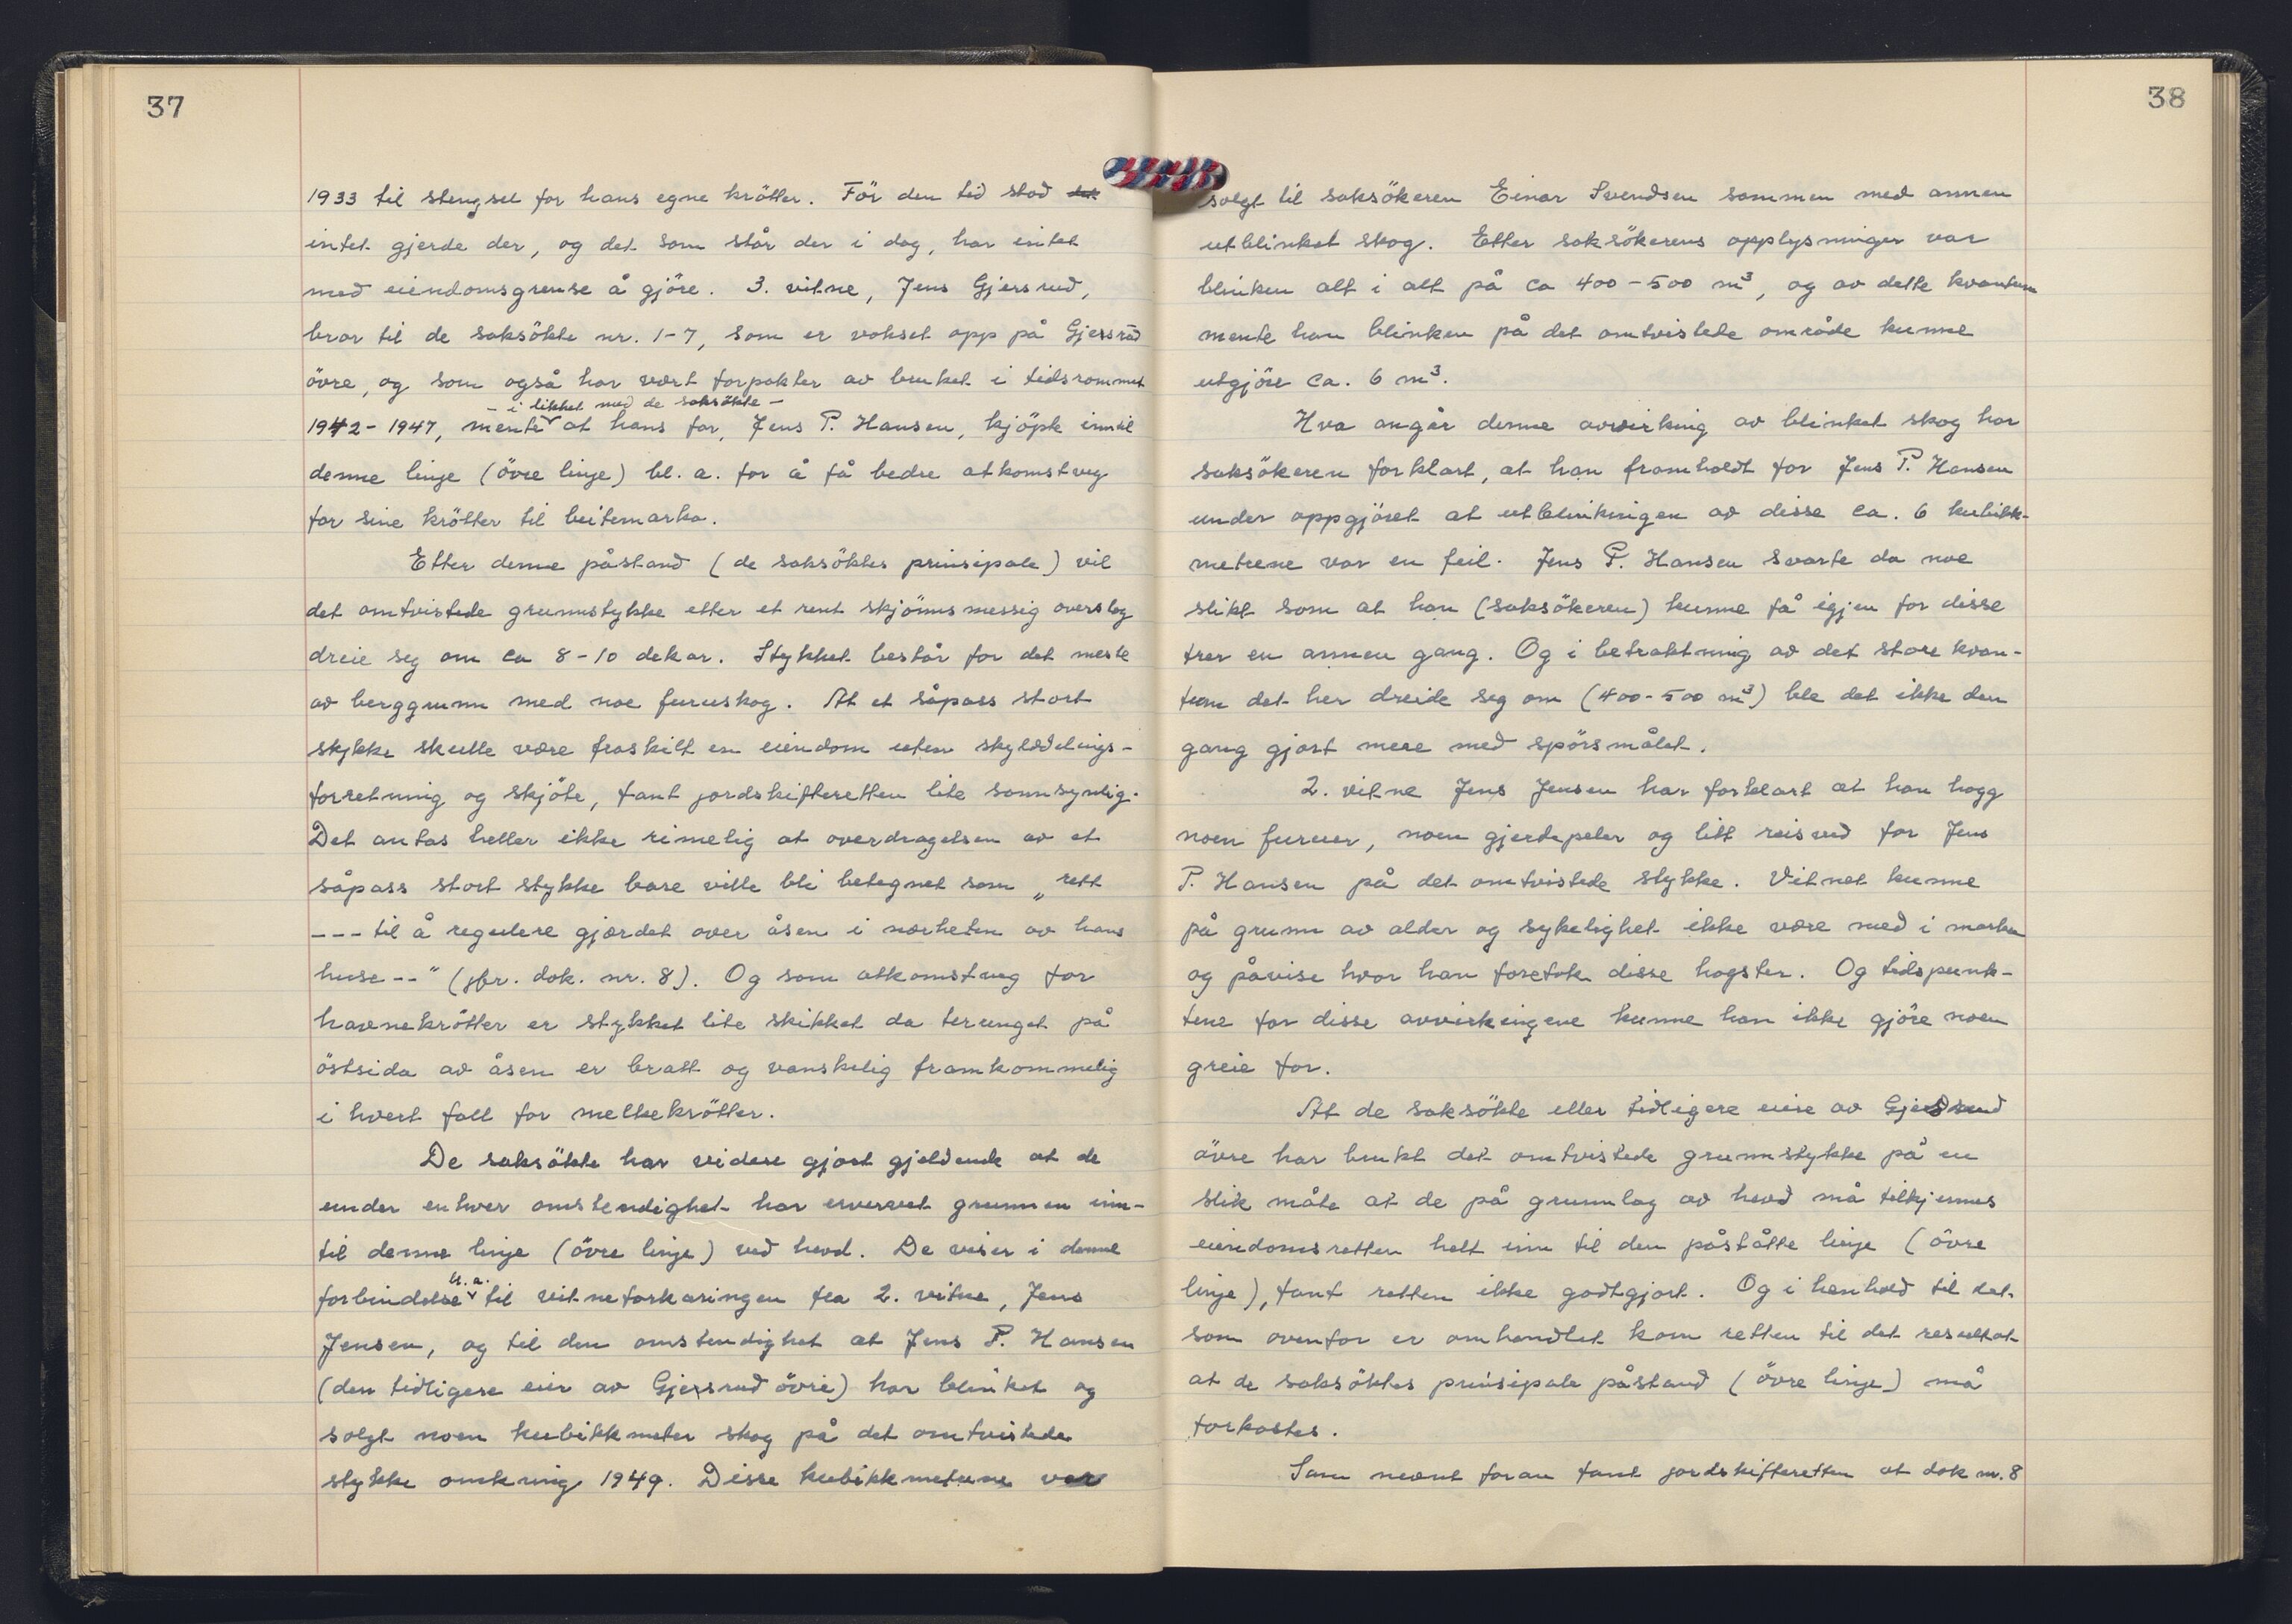 37
1933 til stengsel for hans egne krötter. För den tid stod det
intet gjerde der, og det som står der i dag, har intet
med eiendomsgrense å gjöre. 3. vitne, Jens Gjersrud,
bror til de saksökte nr. 1-7, som er vokset opp på Gjersrud
övre, og som også har vært forpakter av bruket i tidsrommet
- i likhet med de saksökte -
1942-1947, mente at hans far, Jens P. Hansen, kjöpte inntil
denne linje (övre linje) bl. a. for å få bedre atkomstveg
for sine krötter til beitemarka.
Etter denne påstand (de saksöktes prinsipale) vil
det omtvistede grunnstykke etter et rent skjönnsmessig overslag
dreie seg om ca 8-10 dekar. Stykket består for det meste
av berggrunn med noe furuskog. At et såpass stort
stykke skulle være fraskilt en eiendom uten skylddelings-
forretning og skjöte, fant jordskifteretten lite sannsynlig.
Det antas heller ikke rimelig at overdragelsen av et
såpass stort stykke bare ville bli betegnet som „rett
--- til å regulere gjærdet over åsen i nærheten av hans
huse--" (jfr. dok. nr. 8). Og som atkomstveg for
havnekrötter er stykket lite skikket da terrenget på
östsida av åsen er bratt og vanskelig framkommelig
i hvert fall for melkekrötter.
De saksökte har videre gjort gjeldende at de
under enhver omstendighet har ervervet grunnen inn-
til denne linje (övre linje) ved hevd. De viser i denne
bl. a.
forbindelse til vitneforkaringen fra 2. vitne, Jens
Jensen, og til den omstendighet at Jens P. Hansen
(den tidligere eier av Gjersrud övre) har blinket og
solgt noen kubikkmeter skog på det omtvistede
stykke omkring 1949. Disse kubikkmetrene var
38
solgt til saksökeren Einar Svendsen sammen med annen
utblinket skog. Etter saksökerens opplysninger var
blinken alt i alt på ca 400-500 m³, og av dette kvantum
mente han blinken på det omtvistede område kunne
utgjöre ca. 6 m³.
Hva angår denne avvirking av blinket skog har
saksökeren forklart, at han framholdt for Jens P. Hansen
under oppgjöret at utblinkingen av disse ca. 6 kubikk-
metrene var en feil. Jens P. Hansen svarte da noe
slikt som at han (saksökeren) kunne få igjen for disse
trær en annen gang. Og i betraktning av det store kvan-
tum det her dreide seg om (400-500 m³) ble det ikke den
gang gjort mere med spörsmålet.
2. vitne Jens Jensen har forklart at han hogg
noen furuer, noen gjerdepeler og litt reisved for Jens
P. Hansen på det omtvistede stykke. Vitnet kunne
på grunn av alder og sykelighet ikke være med i marka
og påvise hvor han foretok disse hogster. Og tidspunk-
tene for disse avvirkingene kunne han ikke gjöre noen
greie for.
At de saksökte eller tidligere eiere av Gjersrud
övre har brukt det omtvistede grunnstykke på en
slik måte at de på grunnlag av hevd må tilkjennes
eiendomsretten helt inn til den påståtte linje (övre
linje), fant retten ikke godtgjort. Og i henhold til det
som ovenfor er omhandlet kom retten til det resultat
at de saksöktes prinsipale påstand (övre linje) må
forkastes.
Som nevnt foran fant jordskifteretten at dok nr. 8